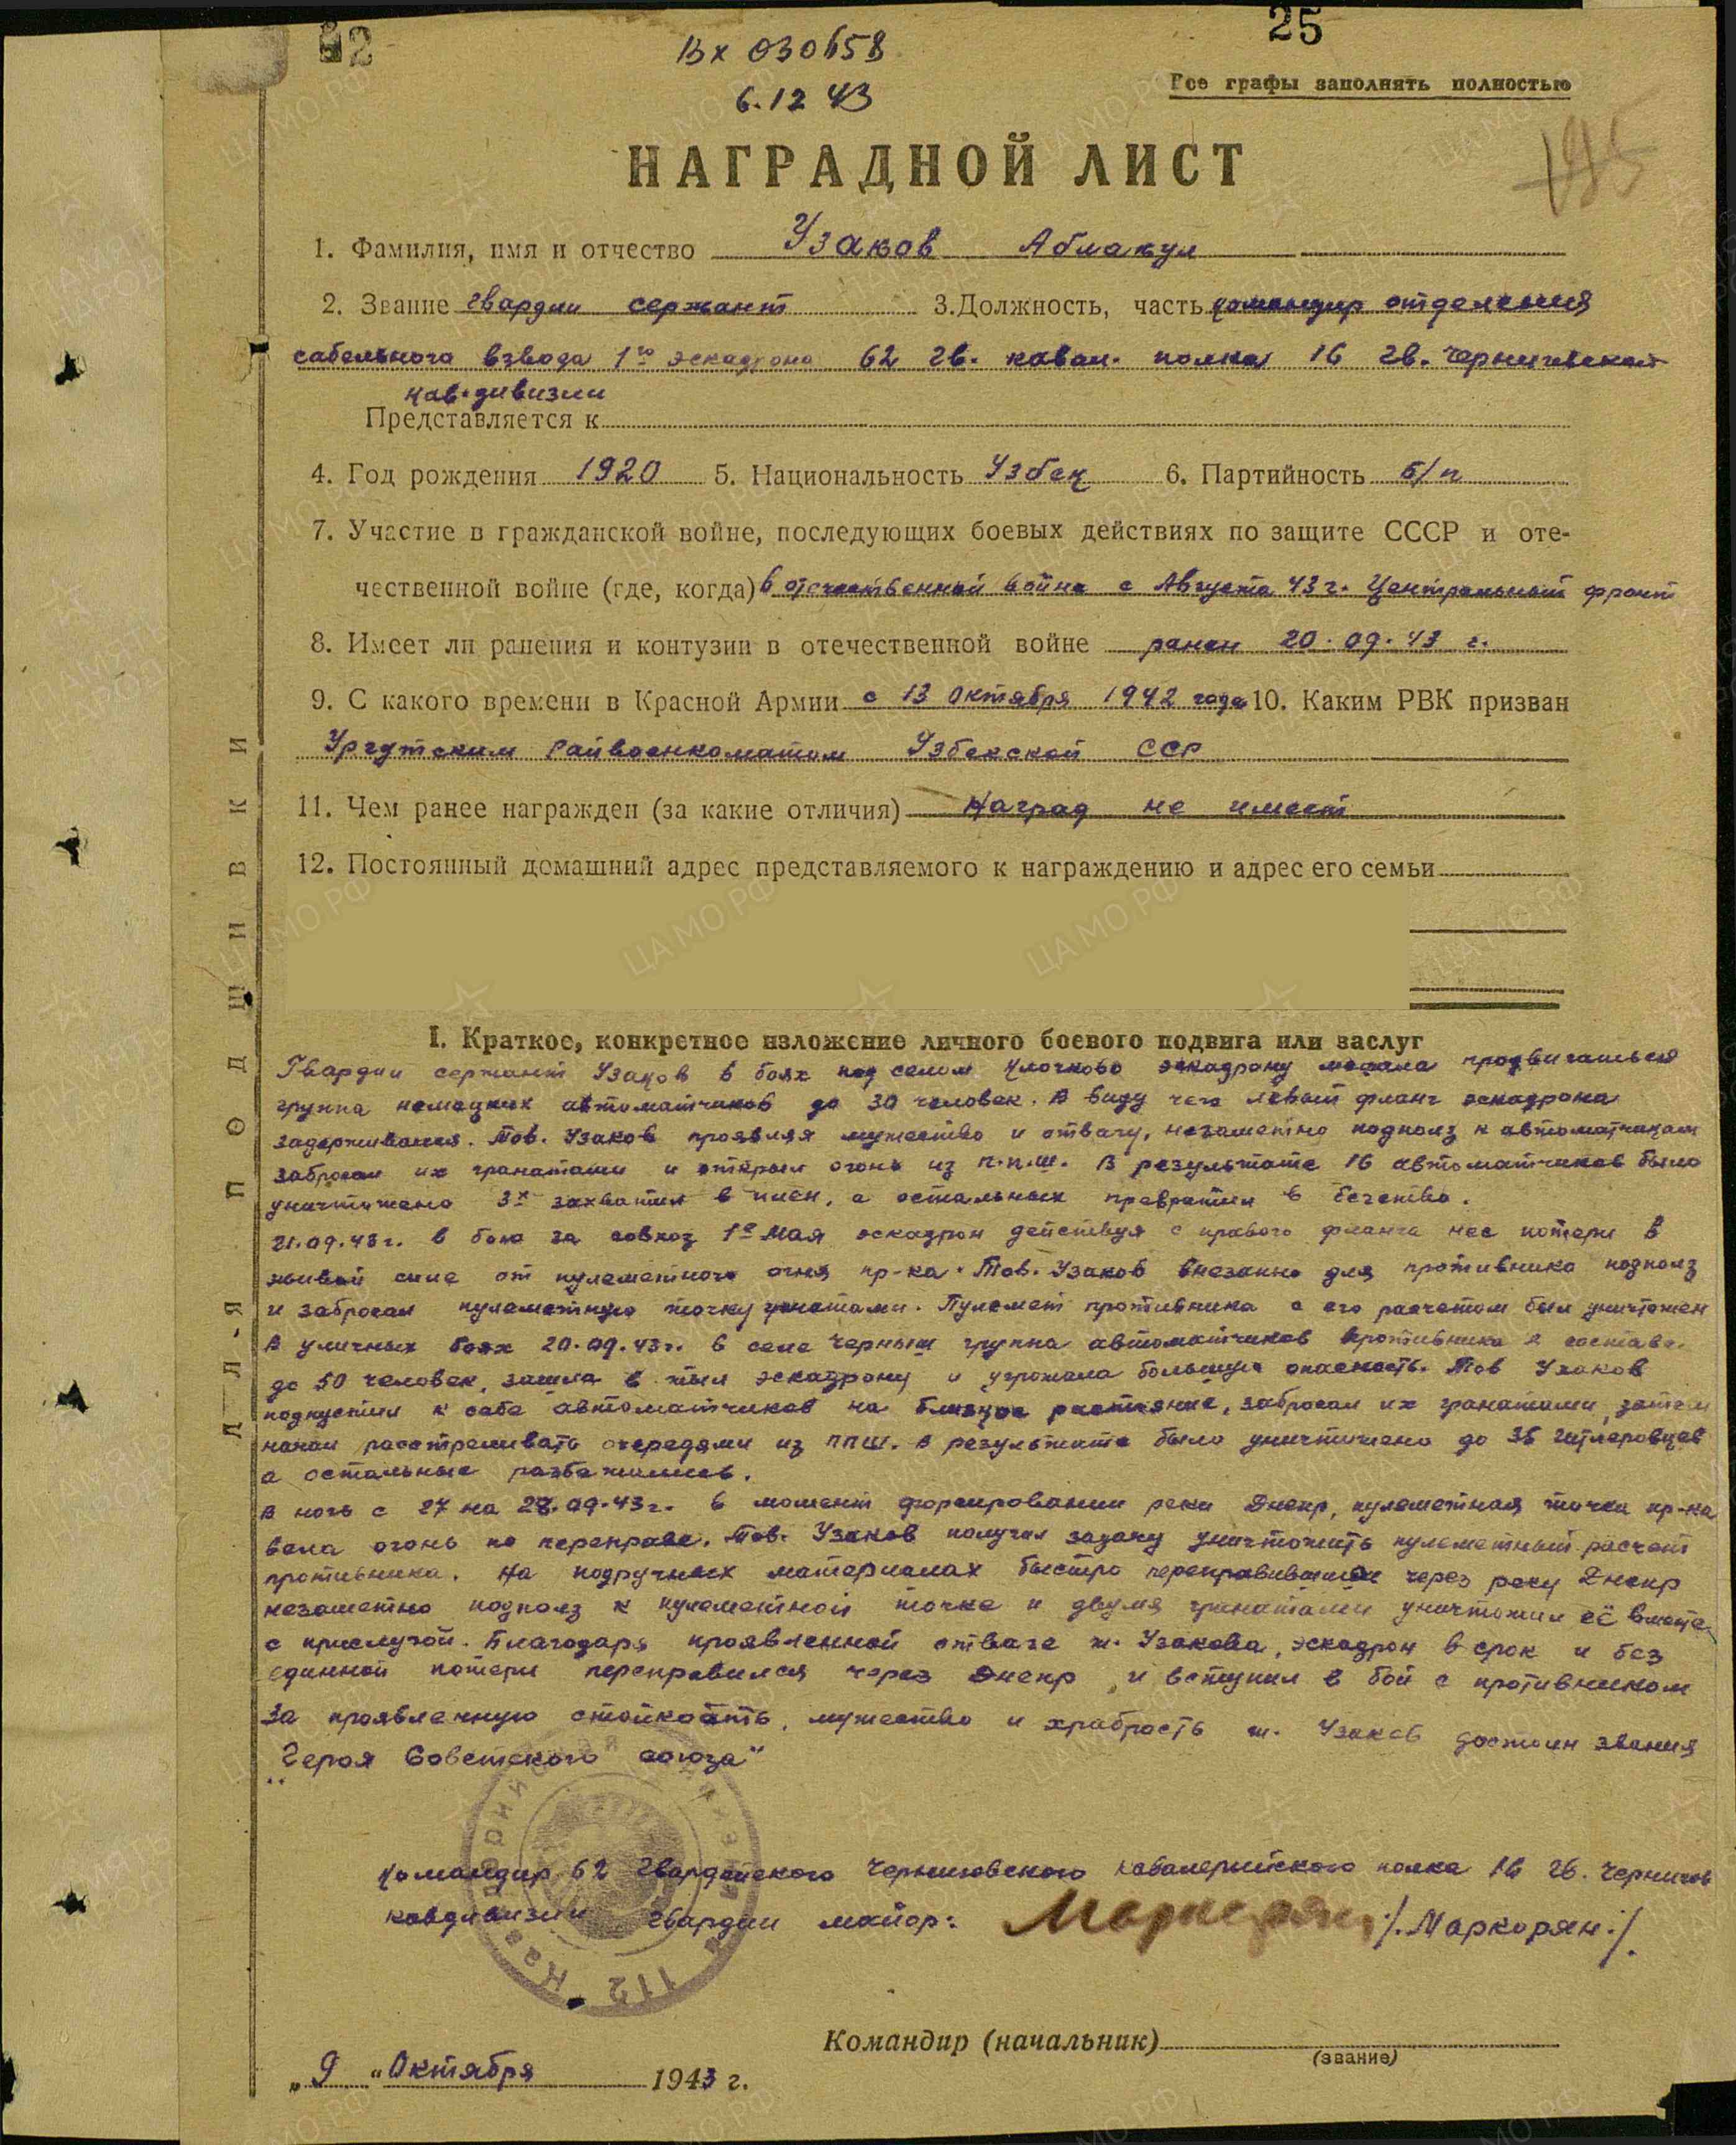 25
Вх 030658
6.12 43
Все графы заполнять полностью
НАГРАДНОЙ ЛИСТ
1. Фамилия, имя и отчество Узаков Аблакул
2. Звание гвардии сержант 3. Должность, часть командир отделения
сабельного взвода 1го эскадрона 62 гв. кавал. полка 16 гв. Черниговской
кав. дивизии
Представляется к
4. Год рождения 1920 5. Национальность Узбек 6. Партийность б/п
7. Участие в гражданской войне, последующих боевых действиях по защите СССР и оте-
чественной войне (где, когда) в отечественной войне с Августа 43 г. Центральный фронт
8. Имеет ли ранения и контузии в отечественной войне ранен 20.09.43 г.
9. С какого времени в Красной Армии с 13 Октября 1942 года 10. Каким РВК призван
Ургутским Райвоенкоматом Узбекской ССР
11. Чем ранее награжден (за какие отличия) Наград не имеет
12. Постоянный домашний адрес представляемого к награждению и адрес его семьи
ДЛЯ ПОДШИВКИ
I. Краткое, конкретное изложение личного боевого подвига или заслуг
Гвардии сержант Узаков в боях под селом Клочково эскадрону мешала продвигаться
группа немецких автоматчиков до 30 человек. В виду чего левый фланг эскадрона
задерживался. Тов. Узаков проявляя мужество и отвагу, незаметно подполз к автоматчикам
забросал их гранатами и открыл огонь из п.п.ш. В результате 16 автоматчиков было
уничтожено 3х захватил в плен, а остальных превратил в бегство.
21.09.43 г. в бою за совхоз 1е Мая эскадрон действуя с правого фланга нес потери в
живой силе от пулеметного огня пр-ка. Тов. Узаков внезапно для противника подполз
и забросал пулеметную точку гранатами. Пулемет противника с его расчетом был уничтожен
В уличных боях 20.09.43 г. в селе Черныш группа автоматчиков противника в составе
до 50 человек, зашла в тыл эскадрону и угрожала большую опасность. Тов Узаков
подпустил к себе автоматчиков на близкое растояние, забросал их гранатами, затем
начал расстреливать очередями из ППШ. В результате было уничтожено до 35 гитлеровцев
а остальные разбежались.
В ночь с 27 на 28.09.43 г. в момент форсировании реки Днепр, пулеметная точка пр-ка
вела огонь по переправе. Тов. Узаков получил задачу уничтожить пулеметный расчет
противника. На подручных материалах быстро переправившись через реку Днепр
незаметно подполз к пулеметной точке и двумя гранатами уничтожил её вместе
с прислугой. Благодаря проявленной отваге т. Узакова, эскадрон в срок и без
единной потери переправился через Днепр, и вступил в бой с противником
За проявленную стойкость, мужество и храбрость т. Узаков достоин звания
„Героя Советского союза"
Командир 62 Гвардейского Черниговского кавалерийского полка 16 гв. Чернигов
кавдивизии гвардии майор: /.Маркорян./
Командир (начальник)
(звание)
„9" Октября 1943 г.
112
ЦА МО РФ